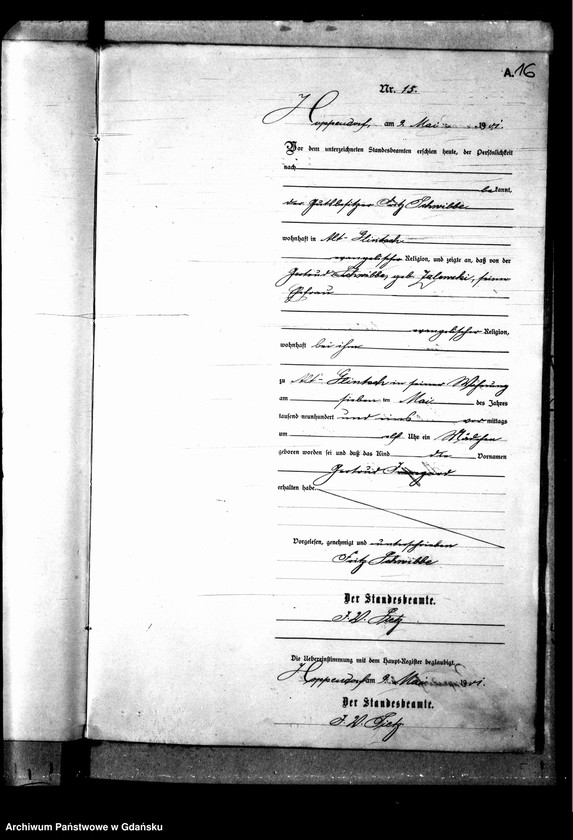 A. 16
Nr. 15.
Hoppendorf, am 9. Mai 1901.
Vor dem unterzeichneten Standesbeamten erschien heute, der Persönlichkeit
nach
bekannt,
der Gutsbesitzer Fritz Schwibbe
wohnhaft in Alt-Glintsch
evangelischer Religion, und zeigte an, daß von der
Gertrud Schwibbe, geb. Zalewski, seiner
Ehefrau
evangelischer Religion,
wohnhaft bei ihm
zu Alt-Glintsch in seiner Wohnung
am sieben ten Mai des Jahres
tausend neunhundert und eins vor mittags
um elf Uhr ein Mädchen
geboren worden sei und daß das Kind die Vornamen
Gertrud
erhalten habe.
Vorgelesen, genehmigt und unterschrieben
Fritz Schwibbe
Der Standesbeamte.
J. V.
Die Uebereinstimmung mit dem Haupt-Register beglaubigt,
Hoppendorf am 9. Mai 1901.
Der Standesbeamte.
J. V.
Archiwum Państwowe w Gdańsku